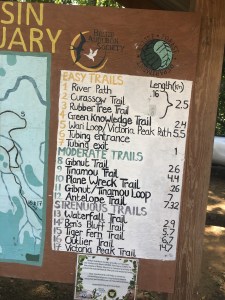 SIN
UARY
Belize
Audubon
Society
EASY TRAILS Length(km)
1 River Path .16
2 Curassow Trail
3 Rubber Tree Trail 2.5
4 Green Knowledge Trail 2.4
5 Wari Loop/Victoria Peak Path 5.5
6 Tubing entrance
7 Tubing exit 1
MODERATE TRAILS
8 Gibnut Trail 2.6
9 Tinamou Trail 4.4
10 Plane Wreck Trail 2.6
11 Gibnut / Tinamou Loop
12 Antelope Trail 7.32
STRENUOUS TRAILS
13 Waterfall Trail
14 Ben's Bluff Trail 2.9
15 Tiger Fern Trail 5.7
16 Outlier Trail 6.7
17 Victoria Peak Trail 14.7